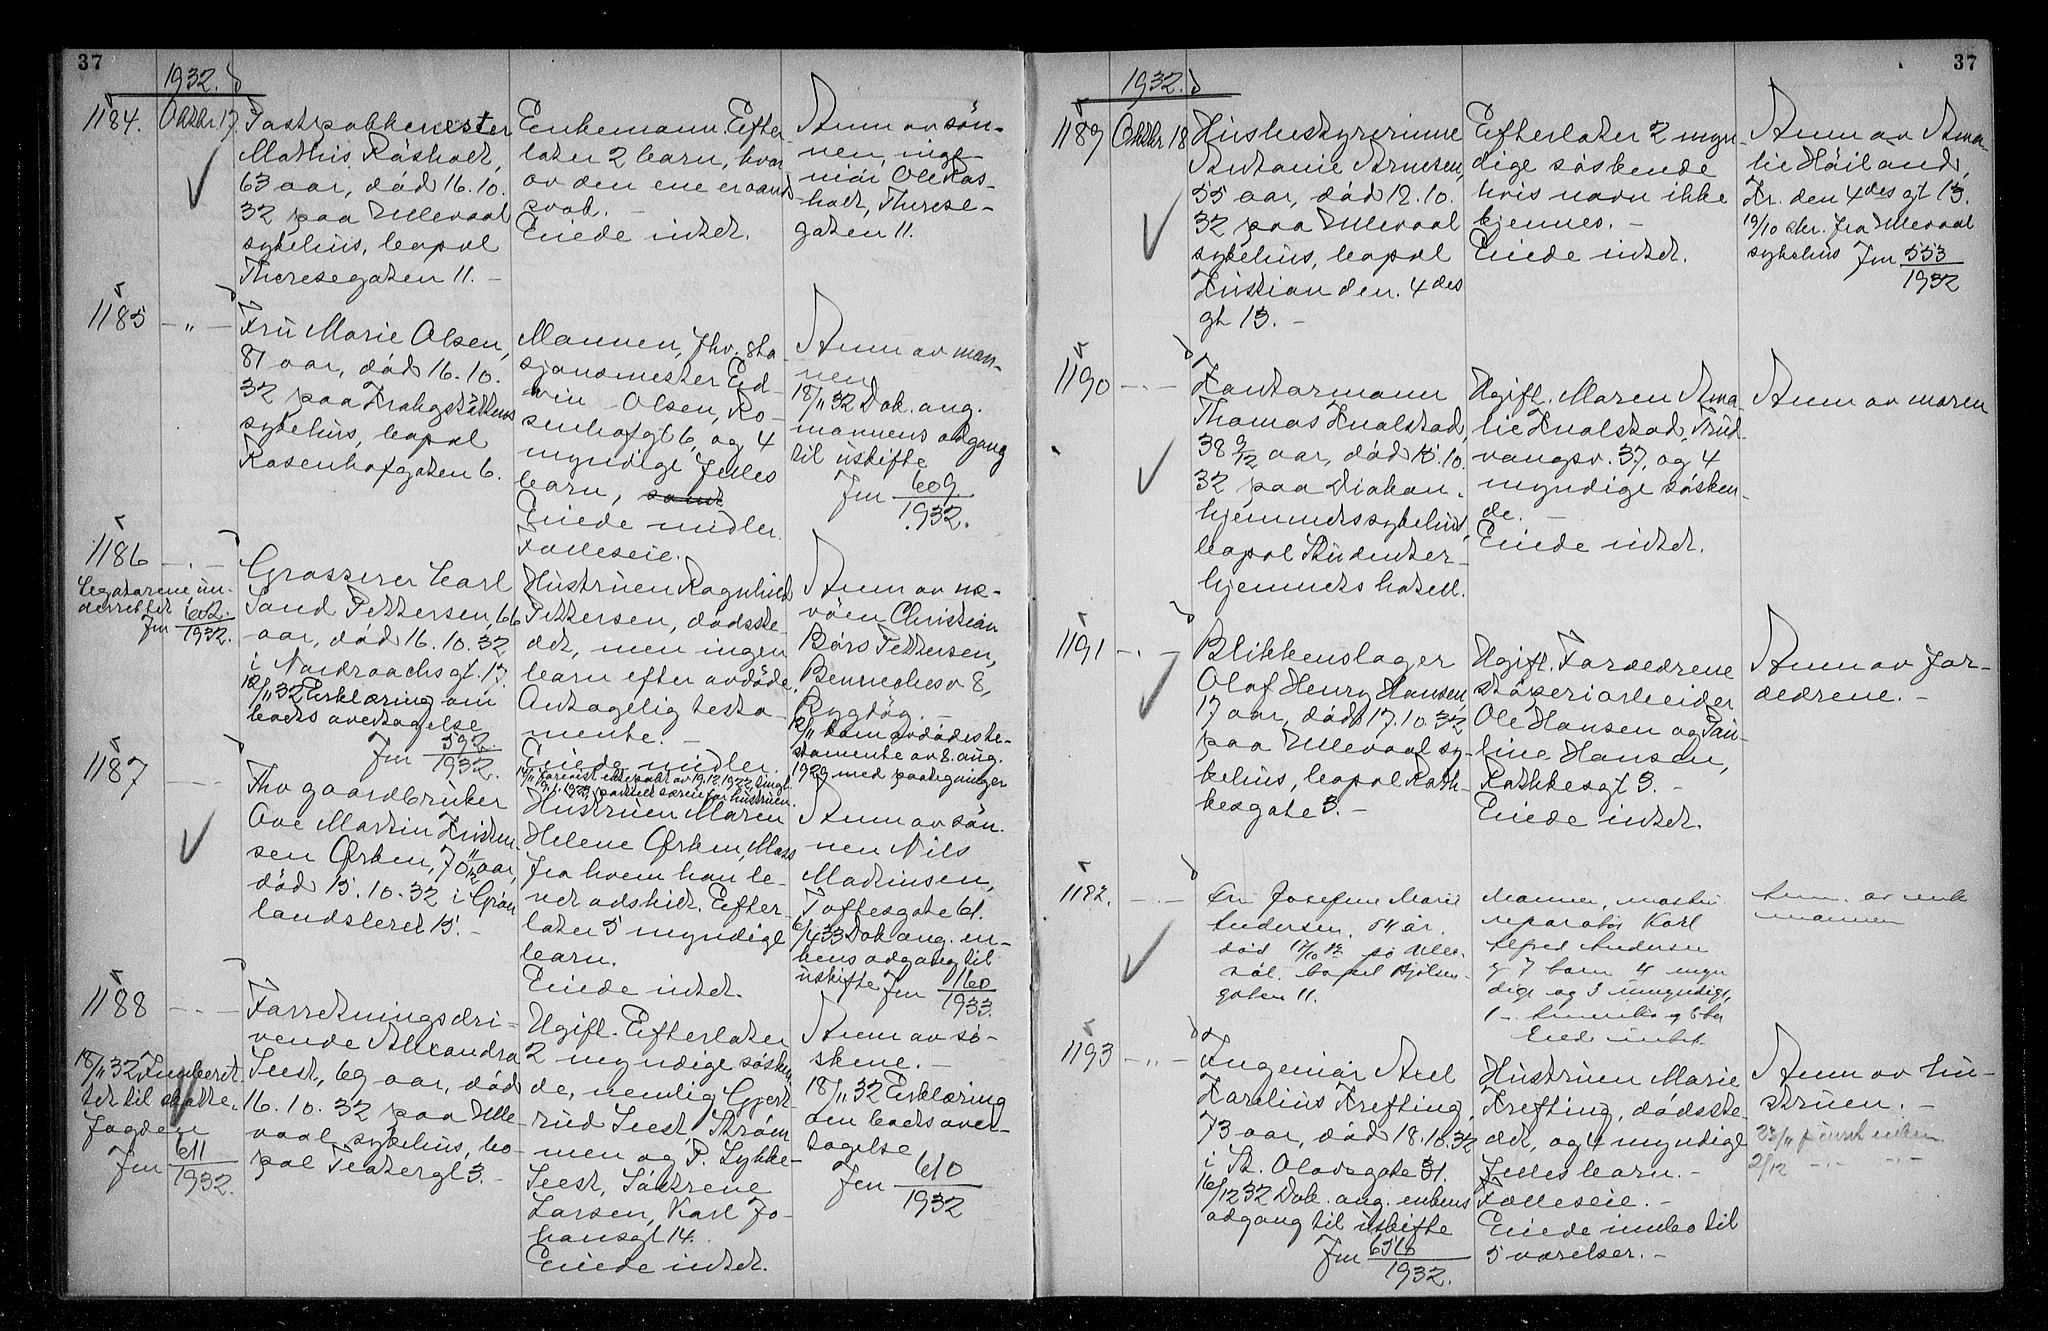 37
1932.
1184.
Oktbr 17.
Postpakkmester
Mathis Råsholt,
63 aar, död 16.10.
32 paa Ullevaal
sykehus, bopæl
Theresegaten 11. -
Enkemann. Efter
later 2 barn, hvor
av den ene er aand
svak. -
Eiede intet.
Anm av søn-
nen, inge-
niör Ole Ras-
holt, Therese-
gaten 11.
1185
- " -
Fru Marie Olsen,
81 aar, död 16.10.
32 paa
sykehus, bopæl
Rosenhofgaten 6.
Mannen, fhv. sta-
sjonsmester Ed-
vin Olsen, Ro-
senhofgt 6, og 4
myndige felles
barn, samt
Eiede midler.
Felleseie.
Anm av man-
nen
18/11 32 Dok. ang.
mannens adgang
til uskifte
Jnr 609
1932.
1186
- " -
Legatarene un-
derrettet
Jnr 602
1932.
Grosserer Carl
Sand Pettersen, 66
aar, död 16.10.32
i Nordraachsgt. 17.
12/11 32 Erklæring om
boets overtagelse
Jnr 592
1932.
Hustruen Ragnhild
Pettersen, dödsste-
det, men ingen
barn efter avdöde.
Antagelig testa-
mente. -
Eiede midler.
Anm av ne-
vöen Christian
Börs Pettersen,
Bennechesv 8,
Bygdög. -
12/11 kom avdödes te-
stamente av 8. aug.
1929 med paategninger
1187
- " -
Fhv gaardbruker
Ove Martin Kristen-
sen Ørken, 70 11/12 aar,
död 15.10.32 i Grön
landsleret 15. -
Hustruen Maren
Helene Ørken, Moss
fra hvem han le-
vet adskilt. Efter-
later 5 myndige
barn.
Eiede intet.
Anm av søn-
nen Nils
Martinsen,
Toftesgate 61.
6/4 33 Dok ang. en-
kens adgang til
uskifte Jnr 1160
1933.
1188
- " -
til skatte-
fogden
Jnr 611
1932.
Forretningsdri-
vende Alexandra
Seest, 69 aar, död
16.10.32 paa Ulle
vaal sykehus, bo-
pæl Teatergt 3. -
Ugift. Efterlater
2 myndige sösken
de, nemlig Gjert-
rud Seest Ström
men og P. Lykke-
Seest, Söstrene
Larsen, Karl Jo-
hansgt 14.
Eiede intet.
Anm av sö-
skene. -
18/11 32 Erklæring
om boets over-
tagelse
Jnr 610
1932
37
1932.
1189
Oktbr 18
Husbestyrerinne
Antonie Arnesen,
55 aar, död 12.10.
32 paa Ullevaal
sykehus, bopæl
Kristian den. 4des
gt 13. -
Efterlater 2 myn-
dige söskende
hvis navn ikke
kjennes. -
Eiede intet.
Anm av Ama-
lie Höiland,
Kr. den 4des gt 13.
19/10 skr. fra Ullevaal
sykehus Jnr 553
1932
1190
- " -
Kontormann
Thomas Knalstad,
38 9/12 aar, död 15.10.
32 paa Diakon-
hjemmets sykehus,
bopæl Studenter-
hjemmets hotell.
Ugift. Moren Ama-
lie Knalstad, Trud-
vangsv. 37, og 4
myndige sösken-
de. -
Eiede intet.
Anm av moren
1191
- " -
Blikkenslager
Olaf Henry Hansen,
17 aar, död 17.10.32
paa Ullevaal sy-
kehus, bopæl Rath-
kesgate 3. -
Ugift. Foreldrene
stöperiarbeider
Ole Hansen og Pau-
line Hansen,
Rathkesgt 3. -
Eiede intet.
Anm av for-
eldrene. -
1192.
- " -
Fru Josefine Marie
Andersen, 54 år.
död 17/10 32 på Ulle-
vål. bopæl Hjelms-
gaten 11.
Mannen, maskin
reparatör Karl
Alfred Andersen
og 7 barn 4 myn
dige og 3 umyndige,
Eiede intet.
Anm. av enke
mannen
1193
- " -
Ingeniör Axel
Karelius Krefting,
73 aar, död 18.10.32
i St. Olavsgate 31.
16/12 32 Dok. ang. enkens
adgang til uskifte
Jnr 656
1932.
Hustruen Marie
Krefting, dödsste-
det, og 4 myndige
felles barn. -
Felleseie. -
Eiede innbo til
5 værelser. -
Anm av hu-
struen. -
23/11 enken
2/12 - " - - " -